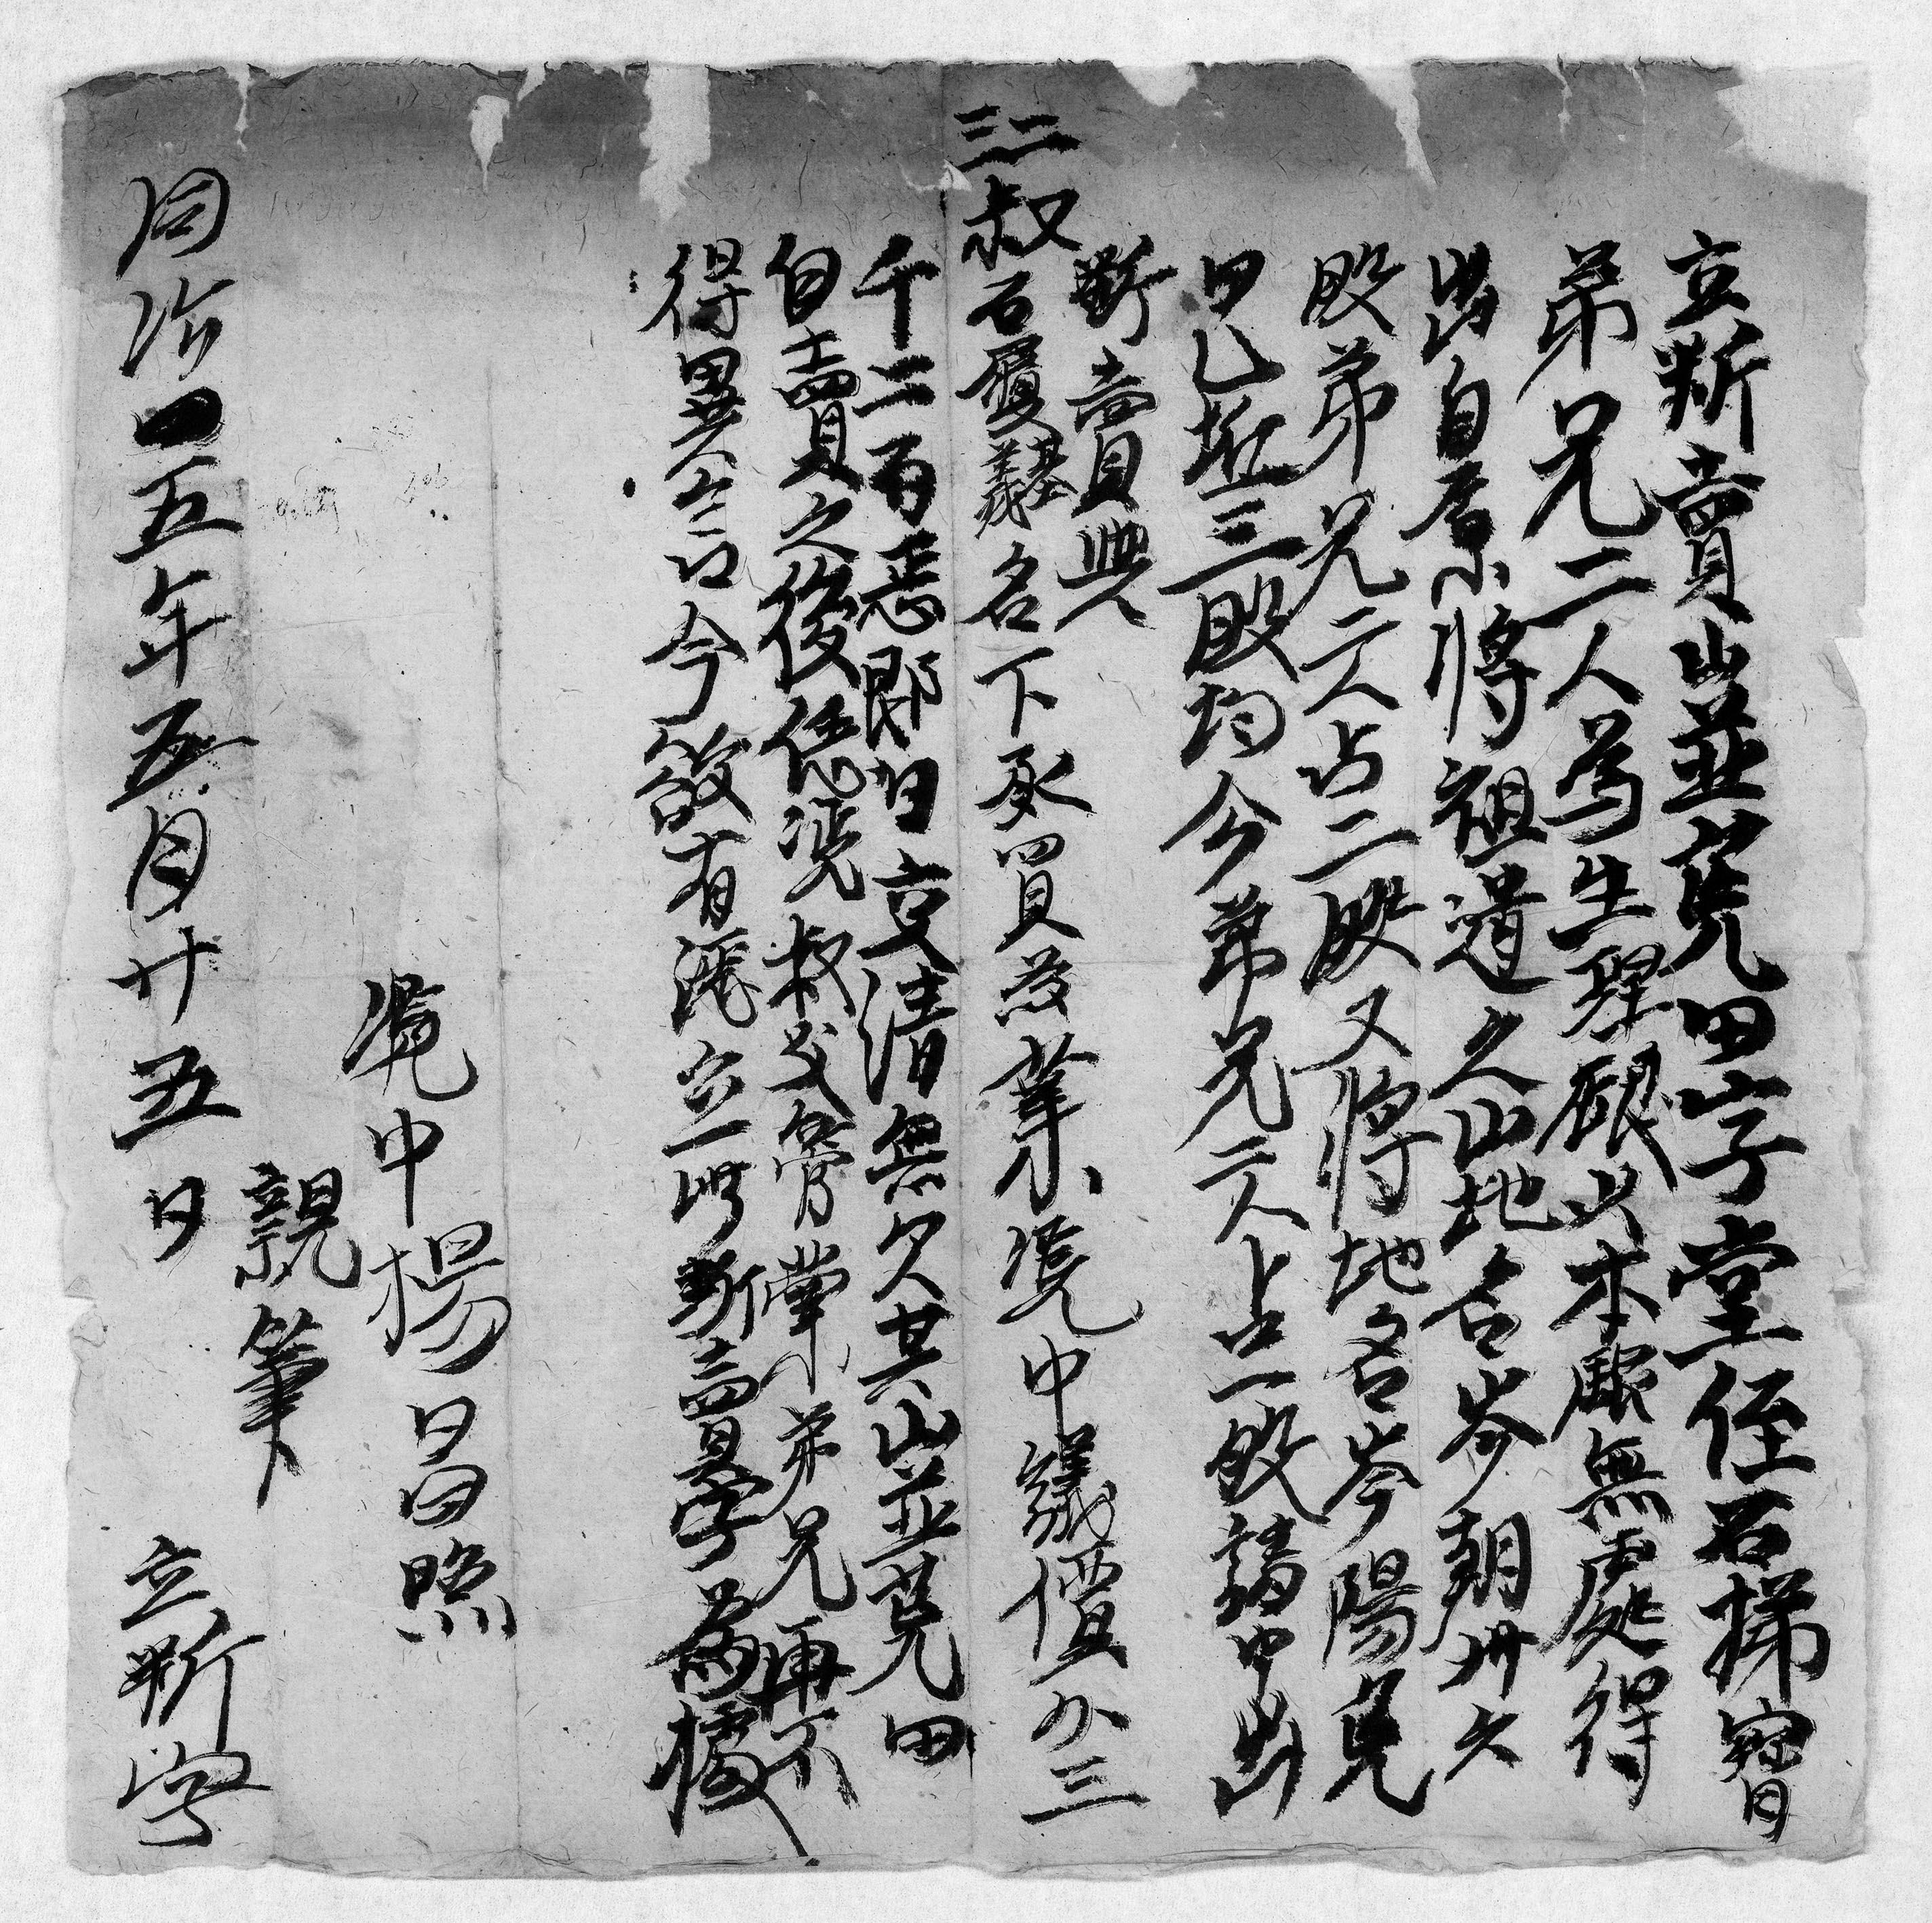 立斷賣山並荒田字堂侄石梯寶
弟兄二人為生理銀以本虧無處得
出自愿將祖遺之山地名岑朝卅六
股弟兄二人占二股又將地名岑陽見
田乚坵三股均今弟兄二人占一股請中出
斷賣與
二三叔石履義名下承買為業凴中議價錢三
千二百悉即日交清無欠其山並荒田
自賣之後任凴叔父管業弟兄再不
得異言今欲有凴立此斷賣字為據
凴中楊昌照
親筆
同治五年五月廿五日 立斷字